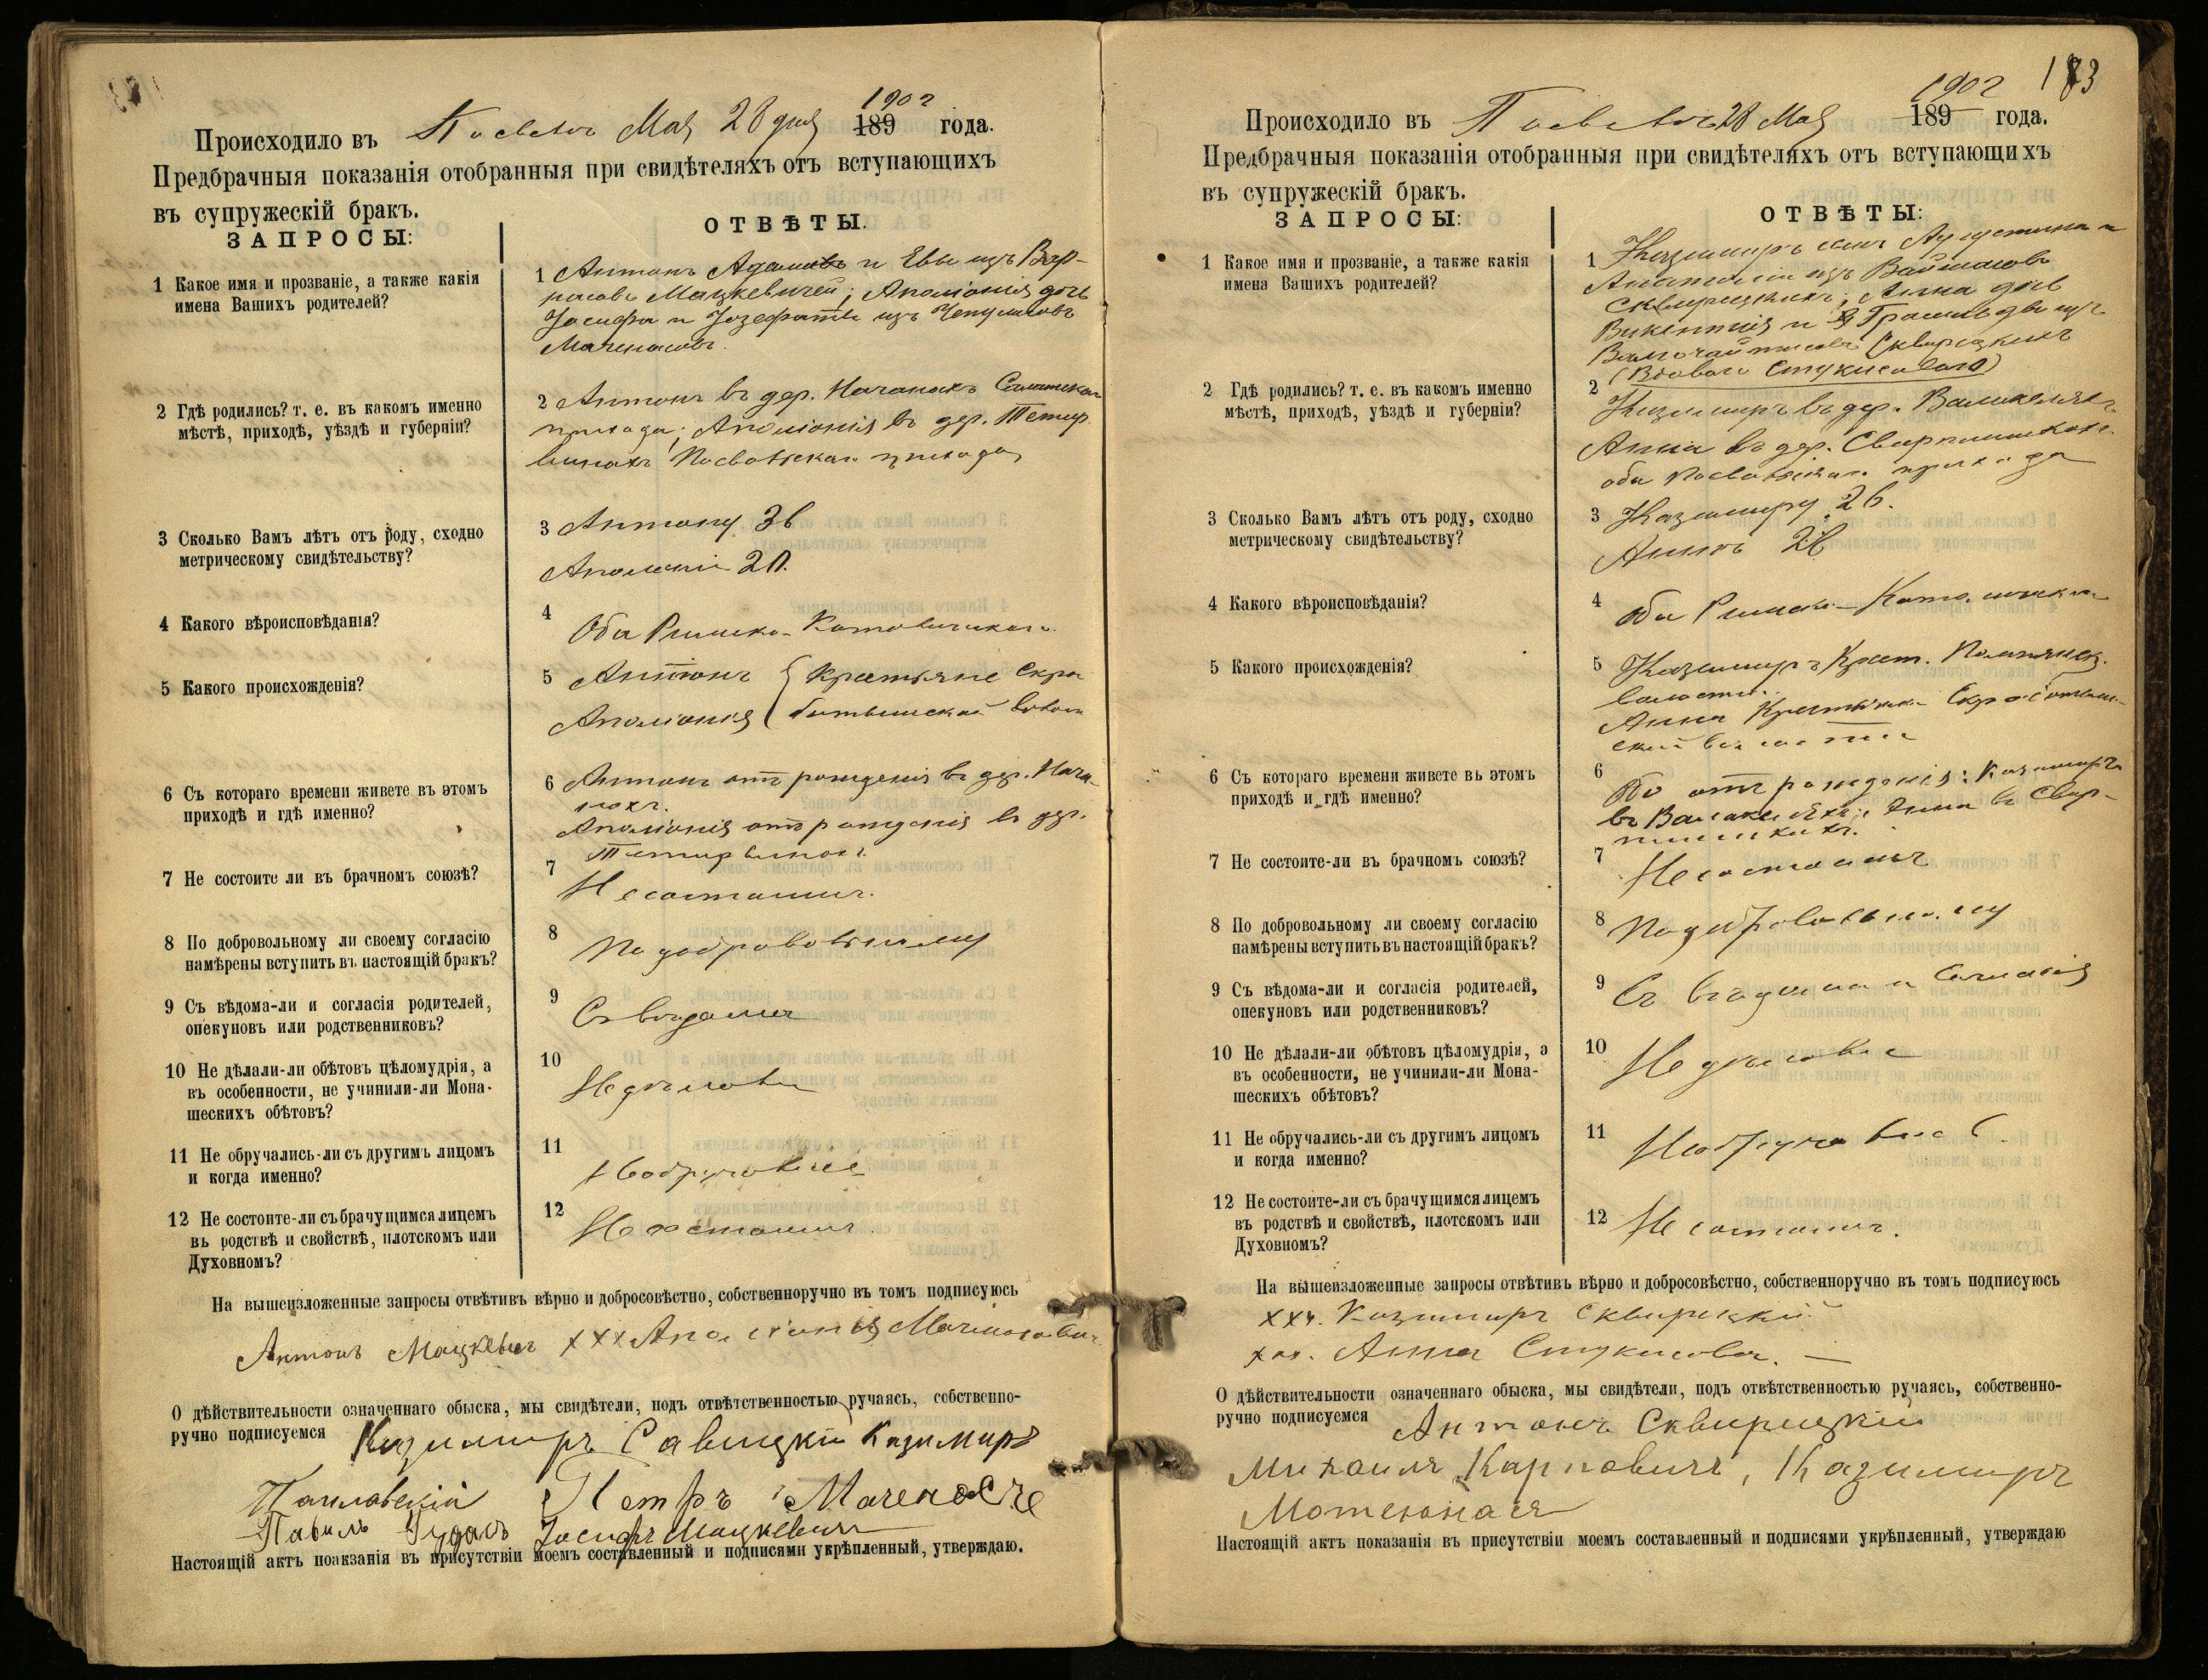 1902
Происходило въ Посволь Мая 28 дня 189 года.
Предбрачныя показанія отобранныя при свидѣтеляхъ отъ вступающихъ
въ супружескій бракъ.
ЗАПРОСЫ:
ОТВѢТЫ.
1 Какое имя и прозваніе, а также какія
имена Вашихъ родителей?
1 Антонъ Адама и Евы изъ
Мацкевичей; Аполіонія дочь
Іосифа и Іозефаты изъ
2 Гдѣ родились? т. е. въ какомъ именно
мѣстѣ, приходѣ, уѣздѣ и губерніи?
2 Антонъ въ дер.
прихода; Аполіонія въ дер.
Посвольскаго прихода
3 Сколько Вамъ лѣтъ отъ роду, сходно
метрическому свидѣтельству?
3 Антону 36
Аполоніи 20.
4 Какого вѣроисповѣданія?
4 Оба Римско-Католическаго
5 Какого происхожденія?
5 Антонъ Крестьяне Скро
Аполіонія ботышской волост
6 Съ котораго времени живете въ этомъ
приходѣ и гдѣ именно?
6 Антонъ отъ рожденія въ дер.
Аполіонія отъ рожденія въ дер.
7 Не состоите ли въ брачномъ союзѣ?
7 Не состоимъ.
8 По добровольному ли своему согласію
намѣрены вступить въ настоящій бракъ?
8 По добровольному
9 Съ вѣдома-ли и согласія родителей,
опекуновъ или родственниковъ?
9 Съ вѣдома
10 Не дѣлали-ли обѣтовъ цѣломудрія, а
въ особенности, не учинили-ли Мона-
шескихъ обѣтовъ?
10 Не дѣлали
11 Не обручались-ли съ другимъ лицомъ
и когда именно?
11 Не обручались
12 Не состоите-ли съ брачущимся лицемъ
въ родствѣ и свойствѣ, плотскомъ или
Духовномъ?
12 Не состоимъ.
На вышеизложенные запросы отвѣтивъ вѣрно и добросовѣстно, собственноручно въ томъ подписуюсь
Антонъ Мацкевич ххх Аполіонія
О дѣйствительности означеннаго обыска, мы свидѣтели, подъ отвѣтственностью ручаясь, собственно-
ручно подписуемся Казимиръ Савицкій Казимиръ
Петръ
Іосифъ Мацкевичъ
Настоящій актъ поаказнія въ присутствіи моемъ составленный и подписями укрѣпленный, утверждаю.
183
1902
Происходило въ Посволь 28 Мая 189 года.
Предбрачныя показанія отобранныя при свидѣтеляхъ отъ вступающихъ
въ супружескій бракъ.
ЗАПРОСЫ:
ОТВѢТЫ:
1 Какое имя и прозваніе, а также какія
имена Вашихъ родителей?
1 Казимиръ сынъ Августина и
Анатоліи изъ
Сквирецкихъ; Анна дочь
Викентія и
Сквирецкихъ
2 Гдѣ родились? т. е. въ какомъ именно
мѣстѣ, приходѣ, уѣздѣ и губерніи?
2 Казимиръ въ дер.
Анна въ дер.
оба Посвольскаго прихода
3 Сколько Вамъ лѣтъ отъ роду, сходно
метрическому свидѣтельству?
3 Казимиру 26.
Аннѣ 26
4 Какого вѣроисповѣданія?
4 Оба Римско-Католическаго
5 Какого происхожденія?
5 Казимиръ Крест.
волости.
Анна Крестьянка Скроботыш-
ской волости
6 Съ котораго времени живете въ этомъ
приходѣ и гдѣ именно?
6 Оба отъ рожденія: Казимиръ
въ Анна въ
7 Не состоите-ли въ брачномъ союзѣ?
7 Не состоимъ
8 По добровольному ли своему согласію
намѣрены вступить въ настоящій бракъ?
8 По добровольному
9 Съ вѣдома-ли и согласія родителей,
опекуновъ или родственниковъ?
9 Съ вѣдома и согласія
10 Не дѣлали-ли обѣтовъ цѣломудрія, а
въ особенности, не учинили-ли Мона-
шескихъ обѣтовъ?
10 Не дѣлали
11 Не обручались-ли съ другимъ лицомъ
и когда именно?
11 Не обручались
12 Не состоите-ли съ брачущимся лицемъ
въ родствѣ и свойствѣ, плотскомъ или
Духовномъ?
12 Не состоимъ.
На вышеизложенные запросы отвѣтивъ вѣрно и добросовѣстно, собственноручно въ томъ подписуюсь
ххх. Казимиръ Сквирецкій
ххх. Анна Стукисова.
О дѣйствительности означеннаго обыска, мы свидѣтели, подъ отвѣтственностью ручаясь, собственно-
ручно подписуемся Антонъ Сквирецкій
Михаилъ Карповичъ, Казимиръ
Настоящій актъ показанія въ присутствіи моемъ составленный и подписями укрѣпленный, утверждаю